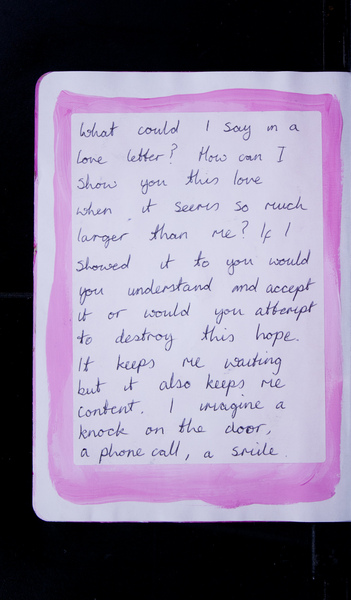 What could I say in a
love letter? How can I
show you this love
when it seems so much
larger than me? If I
showed it to you would
you understand and accept
it or would you attempt
to destroy this hope.
It keeps me waiting
but it also keeps me
content. I imagine a
knock on the door,
a phone call, a smile.